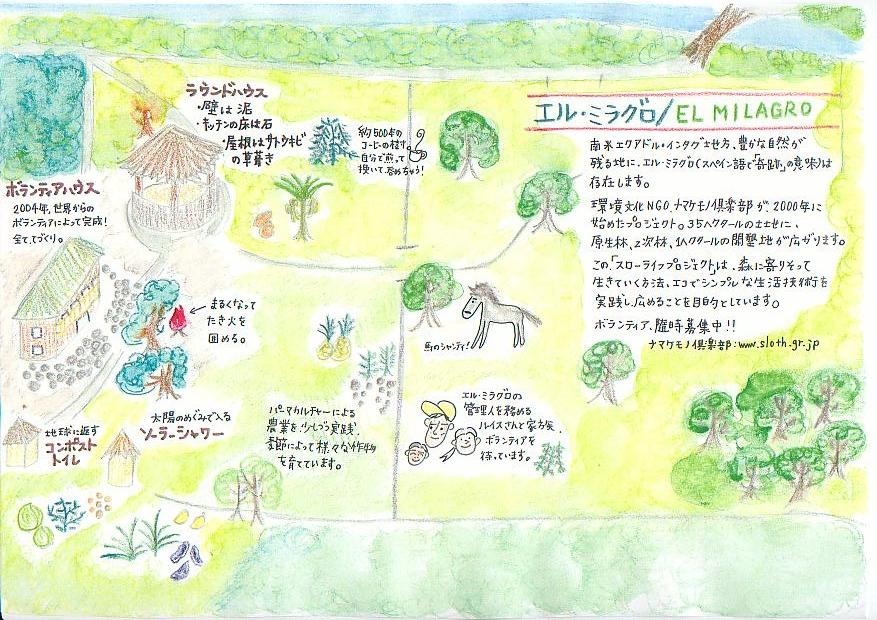 エル・ミラグロ/EL MILAGRO
南米エクアドル・インタグ地方、豊かな自然が
残る地に、エル・ミラグロ(スペイン語で「奇跡」の意味)は
存在します。
環境文化NGO、ナマケモノ倶楽部が、2000年に
始めたプロジェクト。35ヘクタールの土地に、
原生林、2次林、1ヘクタールの開墾地が広がります。
この、「スローライフプロジェクト」は、森に寄りそって
生きていく方法、エコでシンプルな生活技術を
実践し広めることを目的としています。
ボランティア、随時募集中!!
ナマケモノ倶楽部:www.sloth.gr.jp
ラウンドハウス
・壁は泥
・キッチンの床は石
・屋根はサトウキビ
の草葺き
約500本の
コーヒーの樹す。
自分で煎って
挽いて、呑めちゃう!
ボランティアハウス
2004年、世界からの
ボランティアによって完成!
全て手づくり。
まるくなって
たき火を
囲める。
馬のシャンティ!
太陽のめぐみで入る
ソーラーシャワー
地球に返す
コンポスト
トイレ
パーマカルチャーによる
農業を少しづつ実践。
季節によって様々な作物
を育てています。
エル・ミラグロの
管理人を務める
ルイスさんと家族、
ボランティアを
待っています。